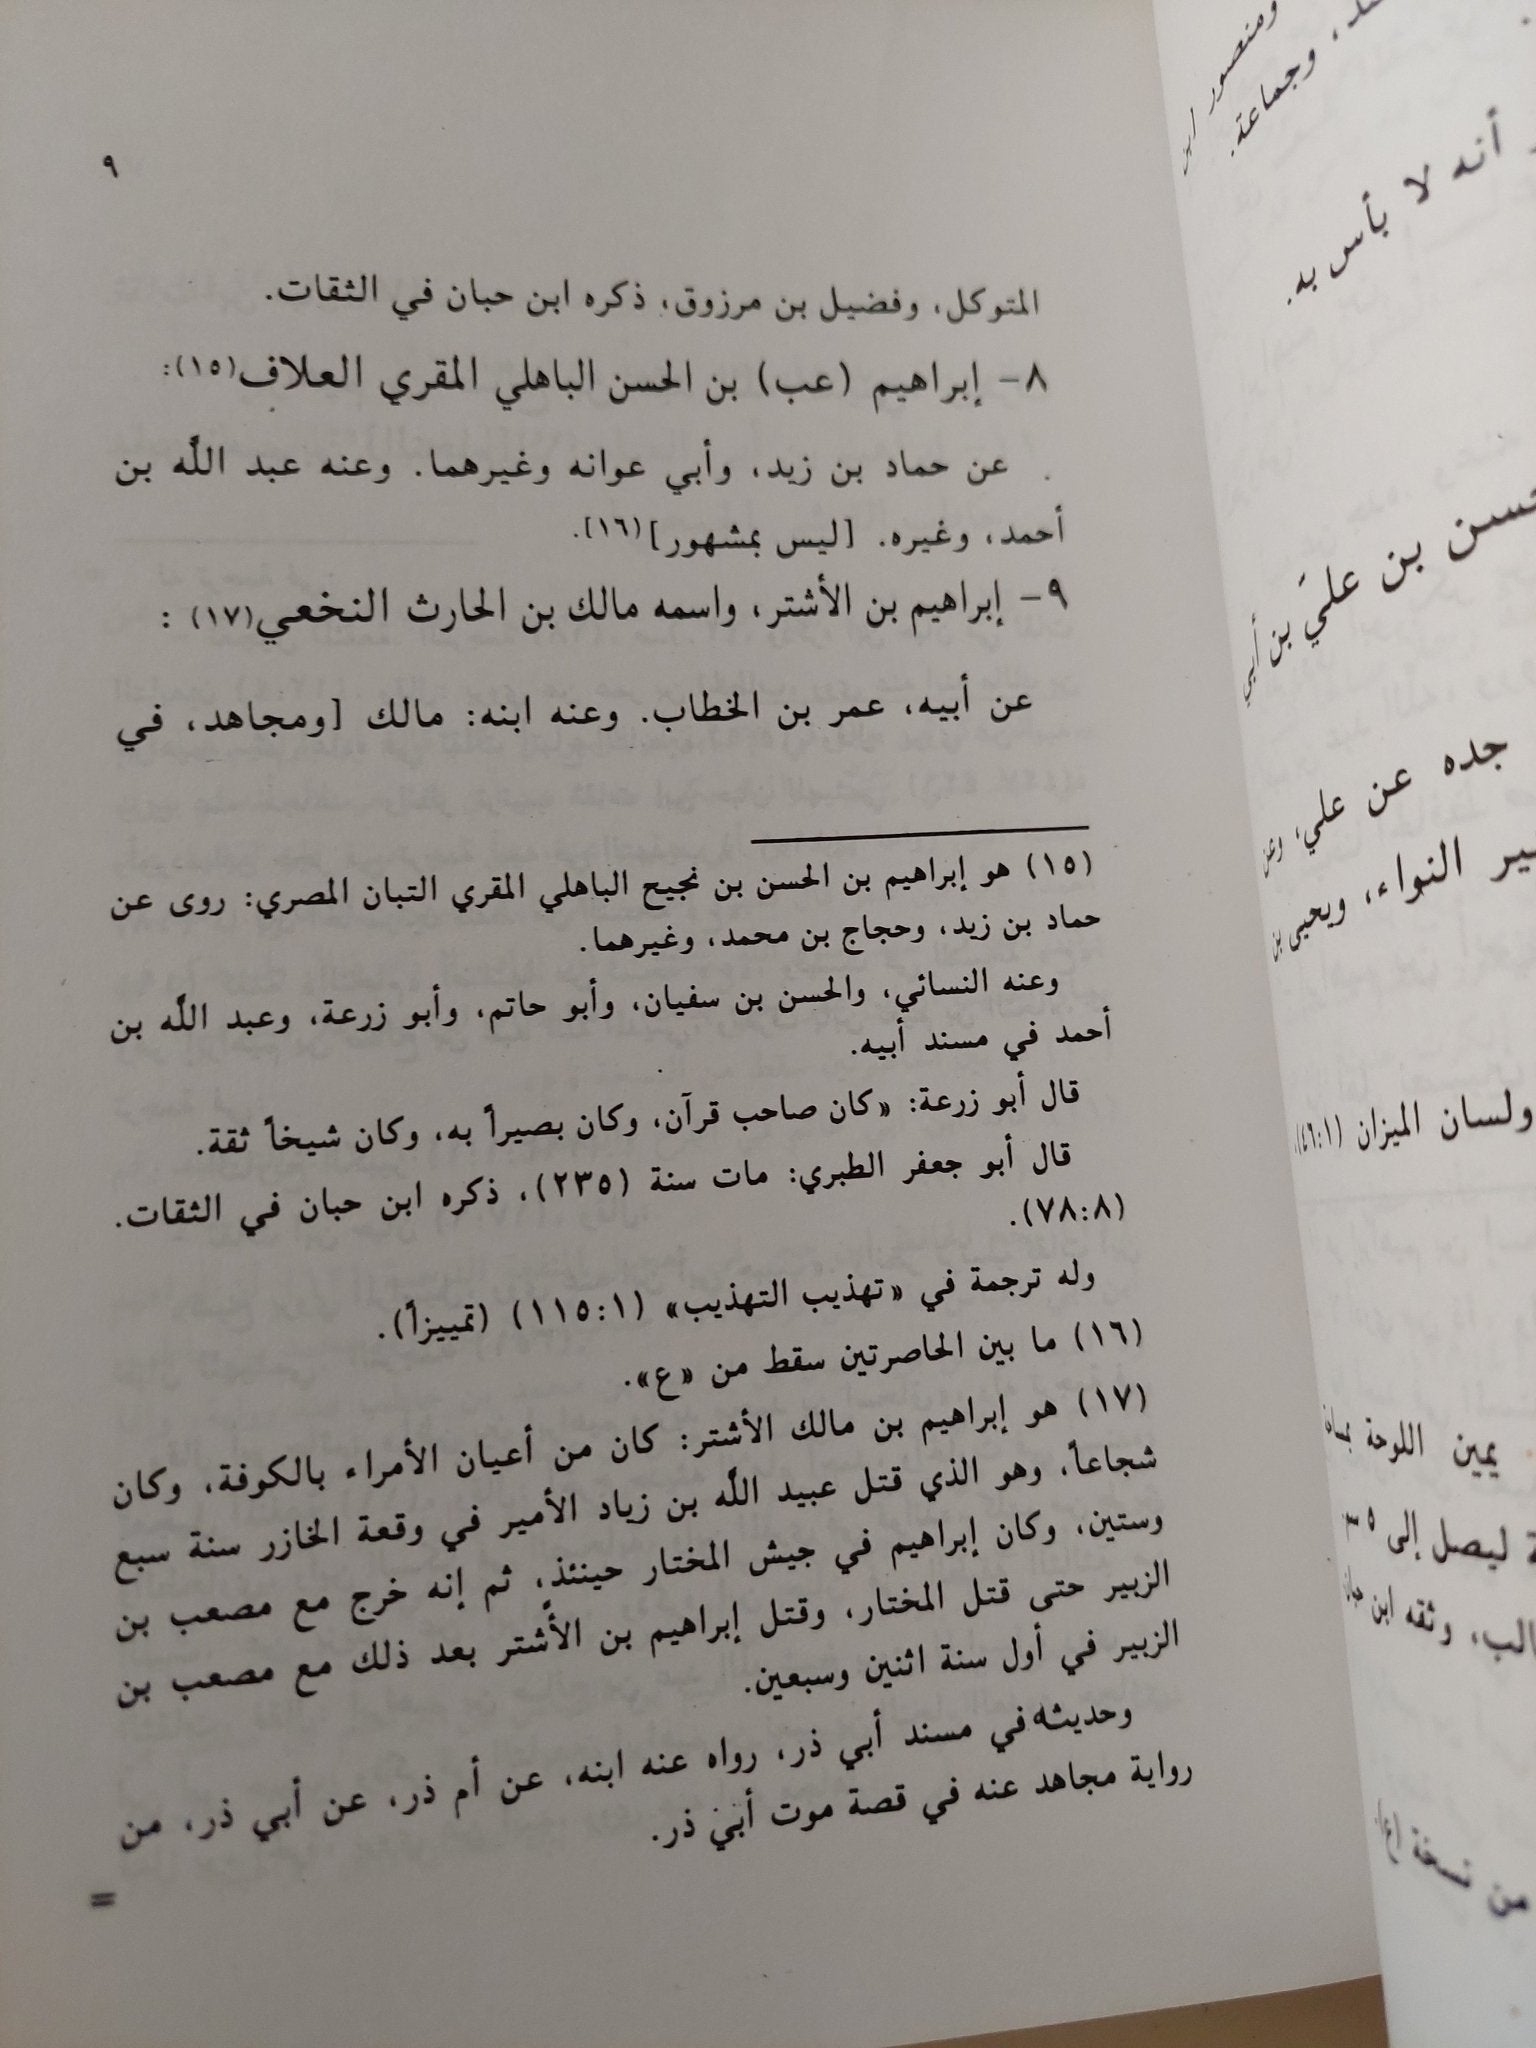 ٩
المتوكل، وفضيل بن مرزوق، ذكره ابن حبان في الثقات.
٨- إبراهيم (عب) بن الحسن الباهلي المقري العلاف(١٥):
عن حماد بن زيد، وأبي عوانه وغيرهما. وعنه عبد اللّه بن
أحمد، وغيره. [ليس بمشهور](١٦).
٩- إبراهيم بن الأشتر، واسمه مالك بن الحارث النخعي(١٧) :
عن أبيه، عمر بن الخطاب. وعنه ابنه: مالك [ومجاهد، في
(١٥) هو إبراهيم بن الحسن بن نجيح الباهلي المقري التبان المصري: روى عن
حماد بن زيد، وحجاج بن محمد، وغيرهما.
وعنه النسائي، والحسن بن سفيان، وأبو حاتم، وأبو زرعة، وعبد اللّه بن
أحمد في مسند أبيه.
قال أبو زرعة: «كان صاحب قرآن، وكان بصيراً به، وكان شيخاً ثقة.
قال أبو جعفر الطبري: مات سنة (٢٣٥)، ذكره ابن حبان في الثقات.
(٧٨:٨).
وله ترجمة في «تهذيب التهذيب» (١١٥:١) (تمييزاً).
(١٦) ما بين الحاصرتين سقط من «ع».
(١٧) هو إبراهيم بن مالك الأشتر: كان من أعيان الأمراء بالكوفة، وكان
شجاعاً، وهو الذي قتل عبيد اللّه بن زياد الأمير في وقعة الخازر سنة سبع
وستين، وكان إبراهيم في جيش المختار حينئذٍ، ثم إنه خرج مع مصعب بن
الزبير حتى قتل المختار، وقتل إبراهيم بن الأشتر بعد ذلك مع مصعب بن
الزبير في أول سنة اثنين وسبعين.
وحديثه في مسند أبي ذر، رواه عنه ابنه، عن أم ذر، عن أبي ذر، من
رواية مجاهد عنه في قصة موت أبي ذر.
=
ومنصور ابن
، وجماعة.
أنه لا بأس به.
بن علي بن أبي
جده عن علي، وعن
النواء، ويحيى بن
ولسان الميزان (٤٦:١)
يمين اللوحة
ليصل إلى ٥
، وثقه ابن
من نسخة (ع)